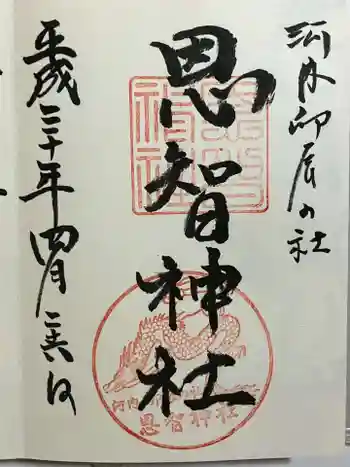 河内卯辰の社
恩智神社
平成三十年四月二六日
恩智神社
河内
恩智神社